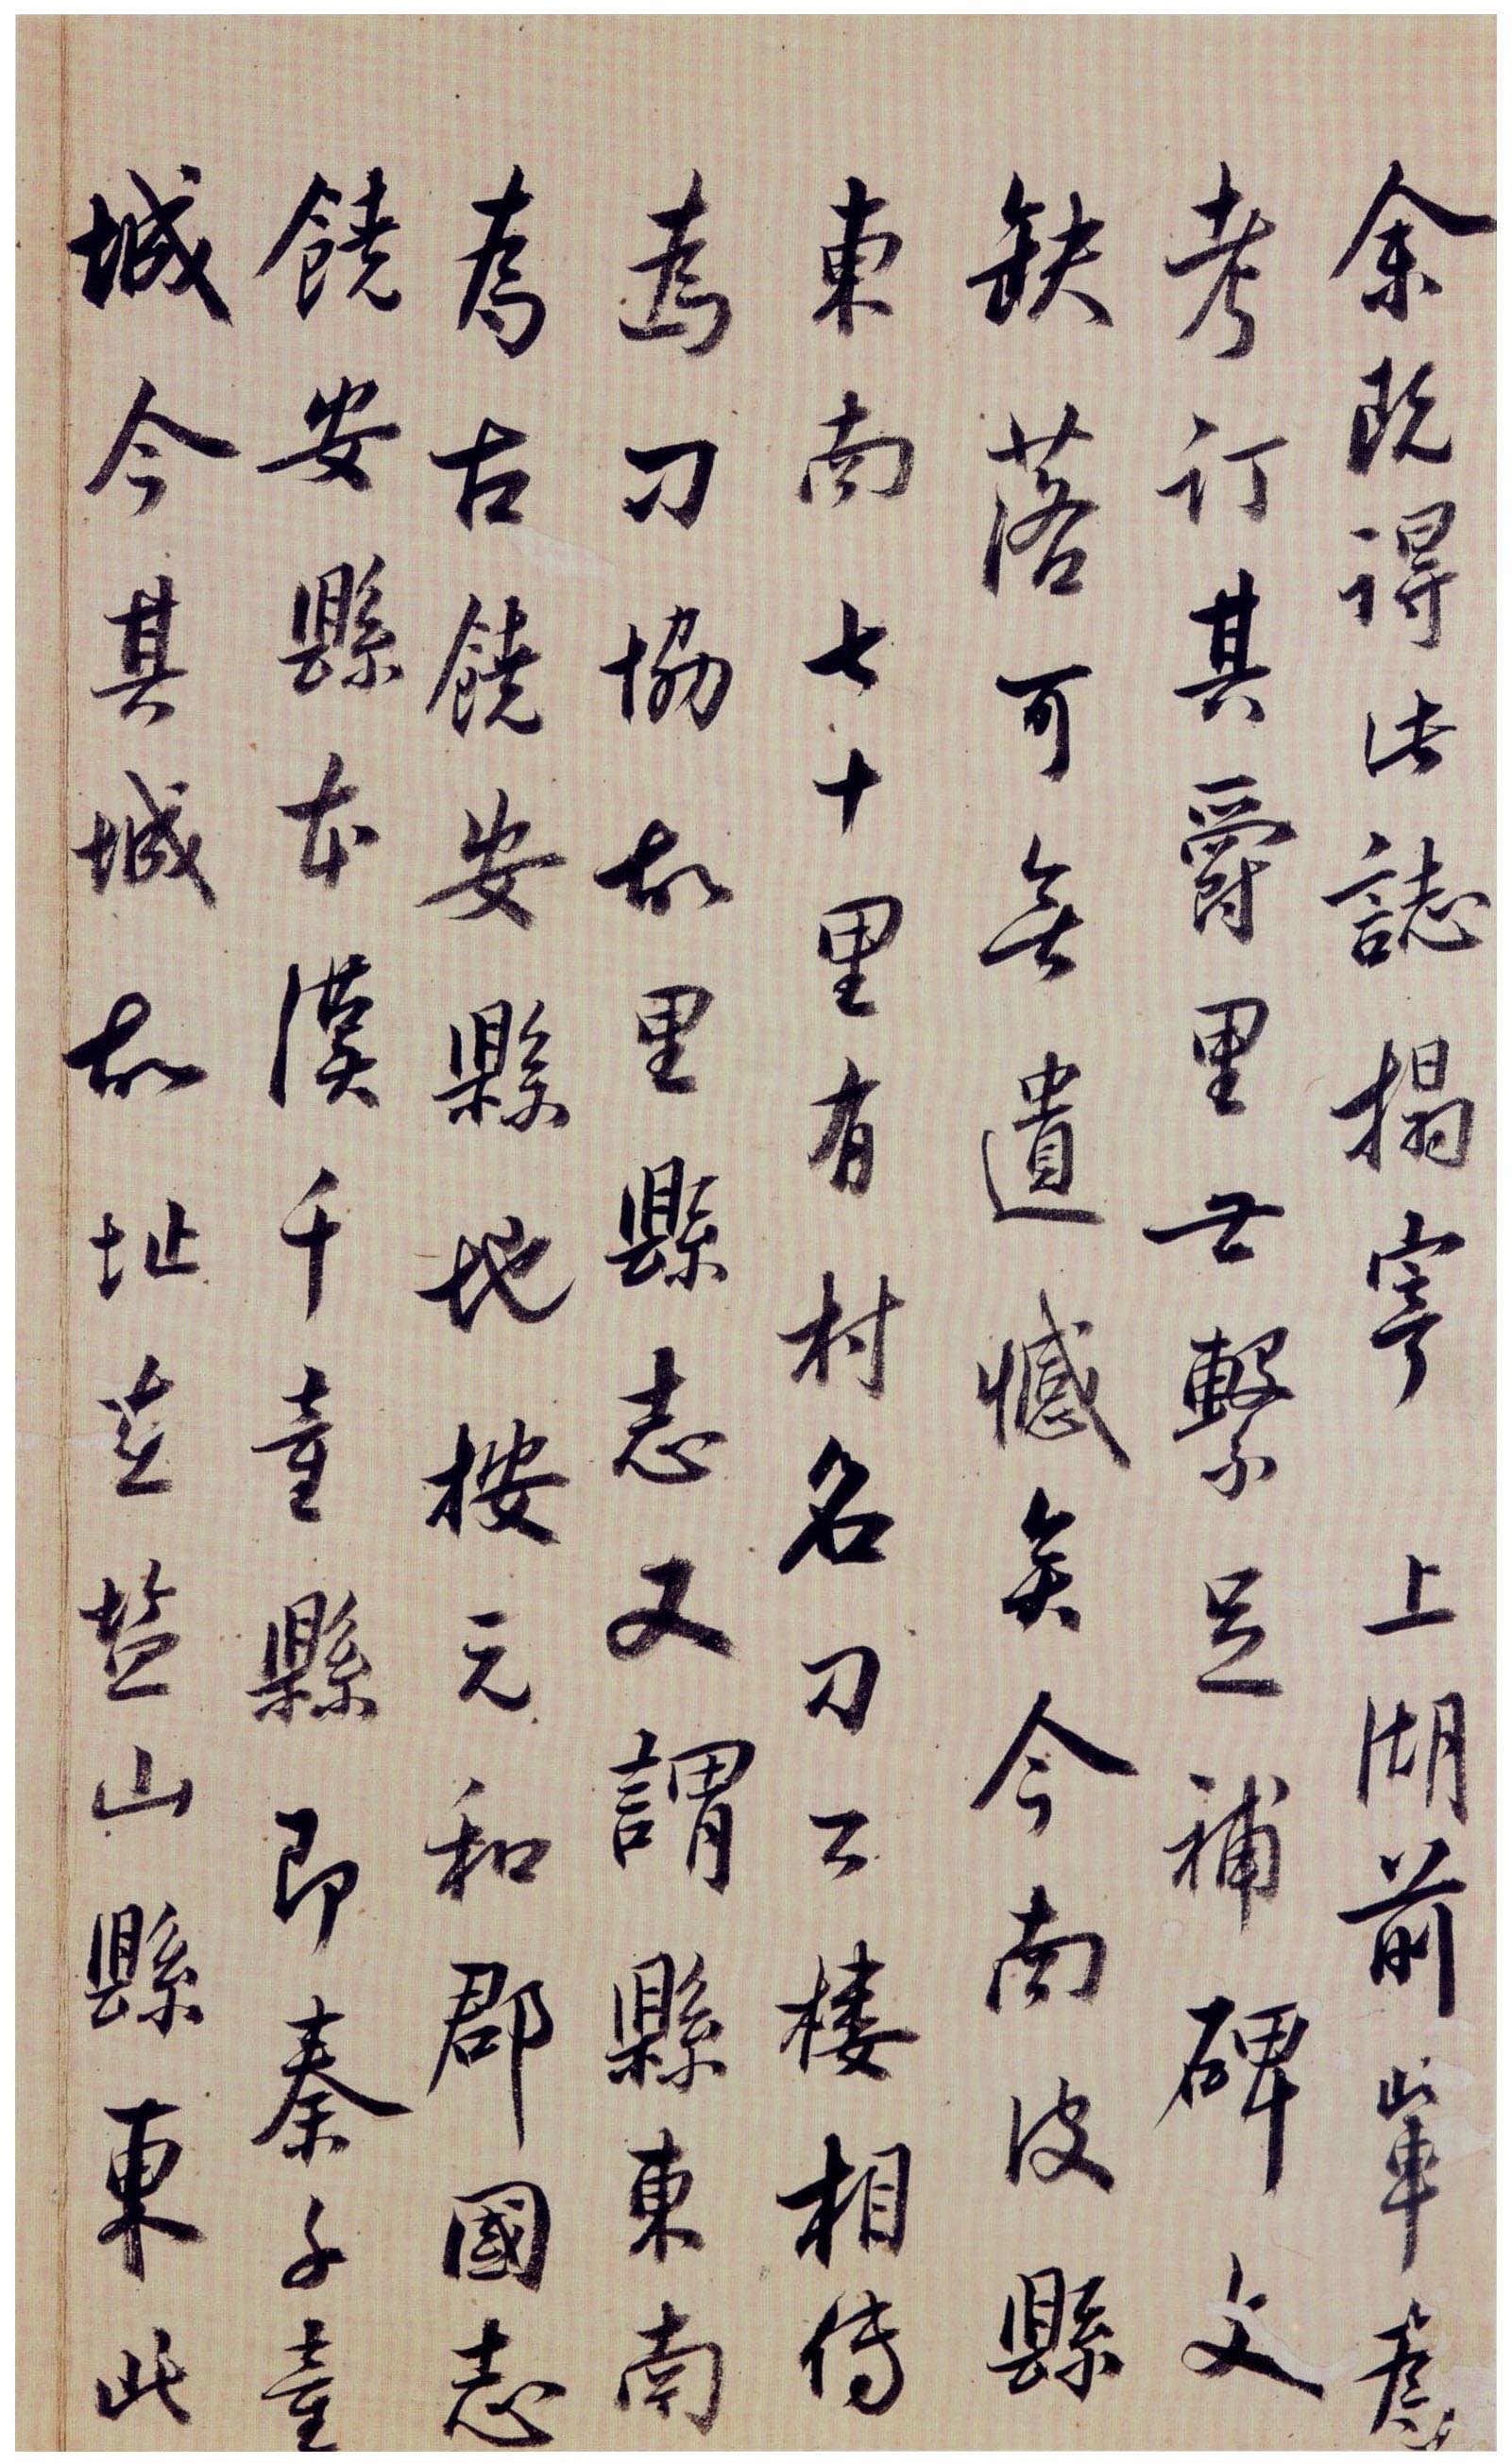 余既得此誌搨寄上湖前輩為
考訂其爵里世繫足補碑文
缺落可無遺憾矣今南皮縣
東南七十里有村名刁公樓相傳
為刁協故里縣志又謂縣東南
為古饒安縣地按元和郡國志
饒安縣本漢千童縣即秦千童
城今其城故址在盐山縣東此